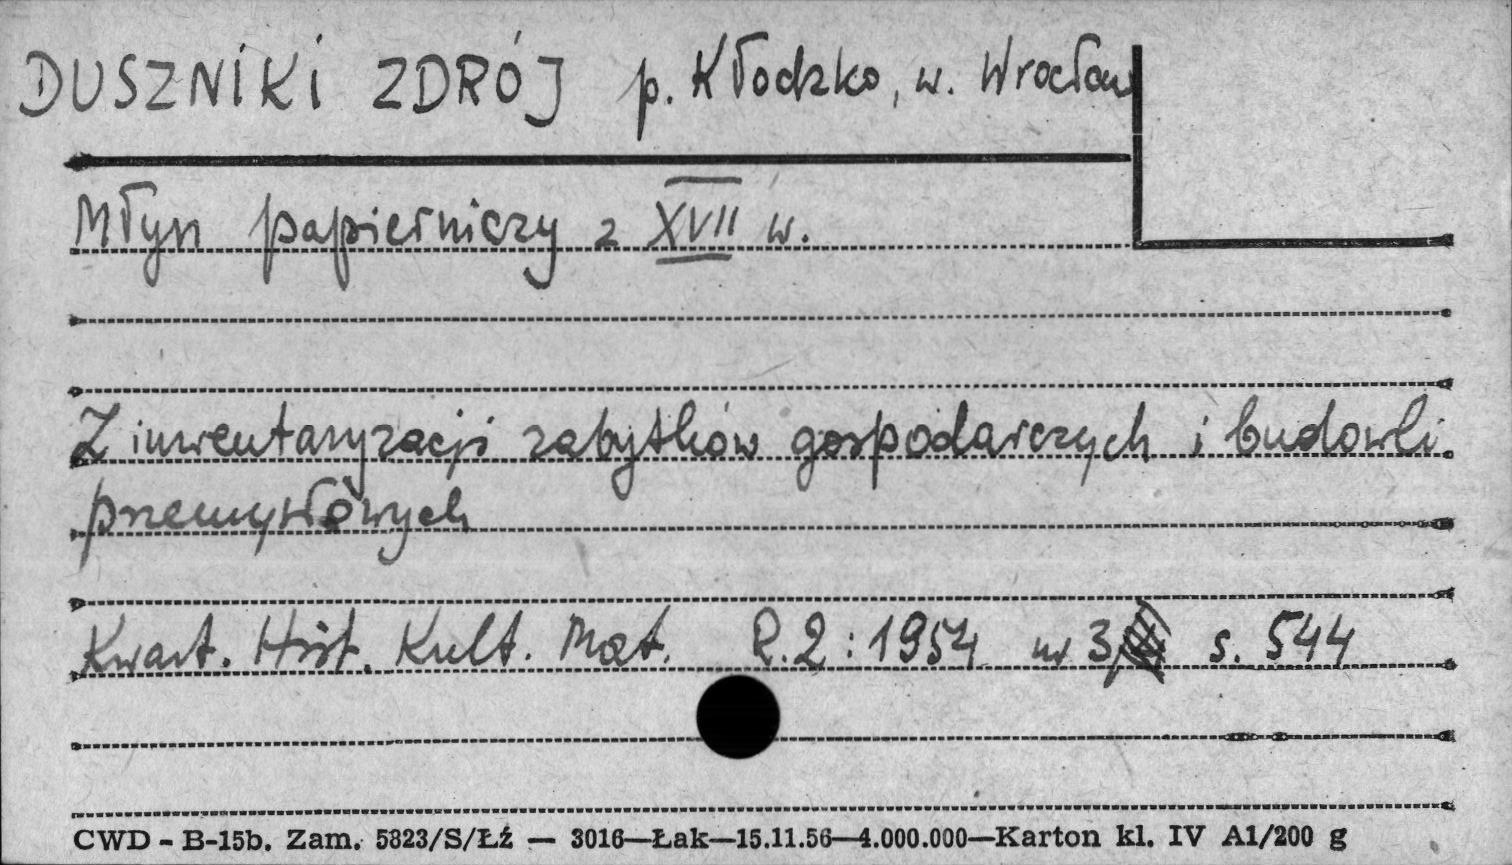 DUSZNIKI ZDRÓJ p. Kłodzko, w. Wrocław
Młyn papierniczy z XVII w.
Z inwentaryzacji zabytków gospodarczych i budowli
przemysłowych
Kwart. Hist. Kult. Mat. R.2:1954 nr 3 s. 544
CWD - B-15b. Zam. 5823/S/Łź — 3016—Łak—15.11.56—4.000.000—Karton kl. IV A1/200 g